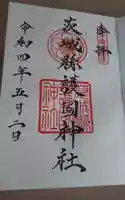 奉拝
茨城縣護國神社
令和四年五月二日